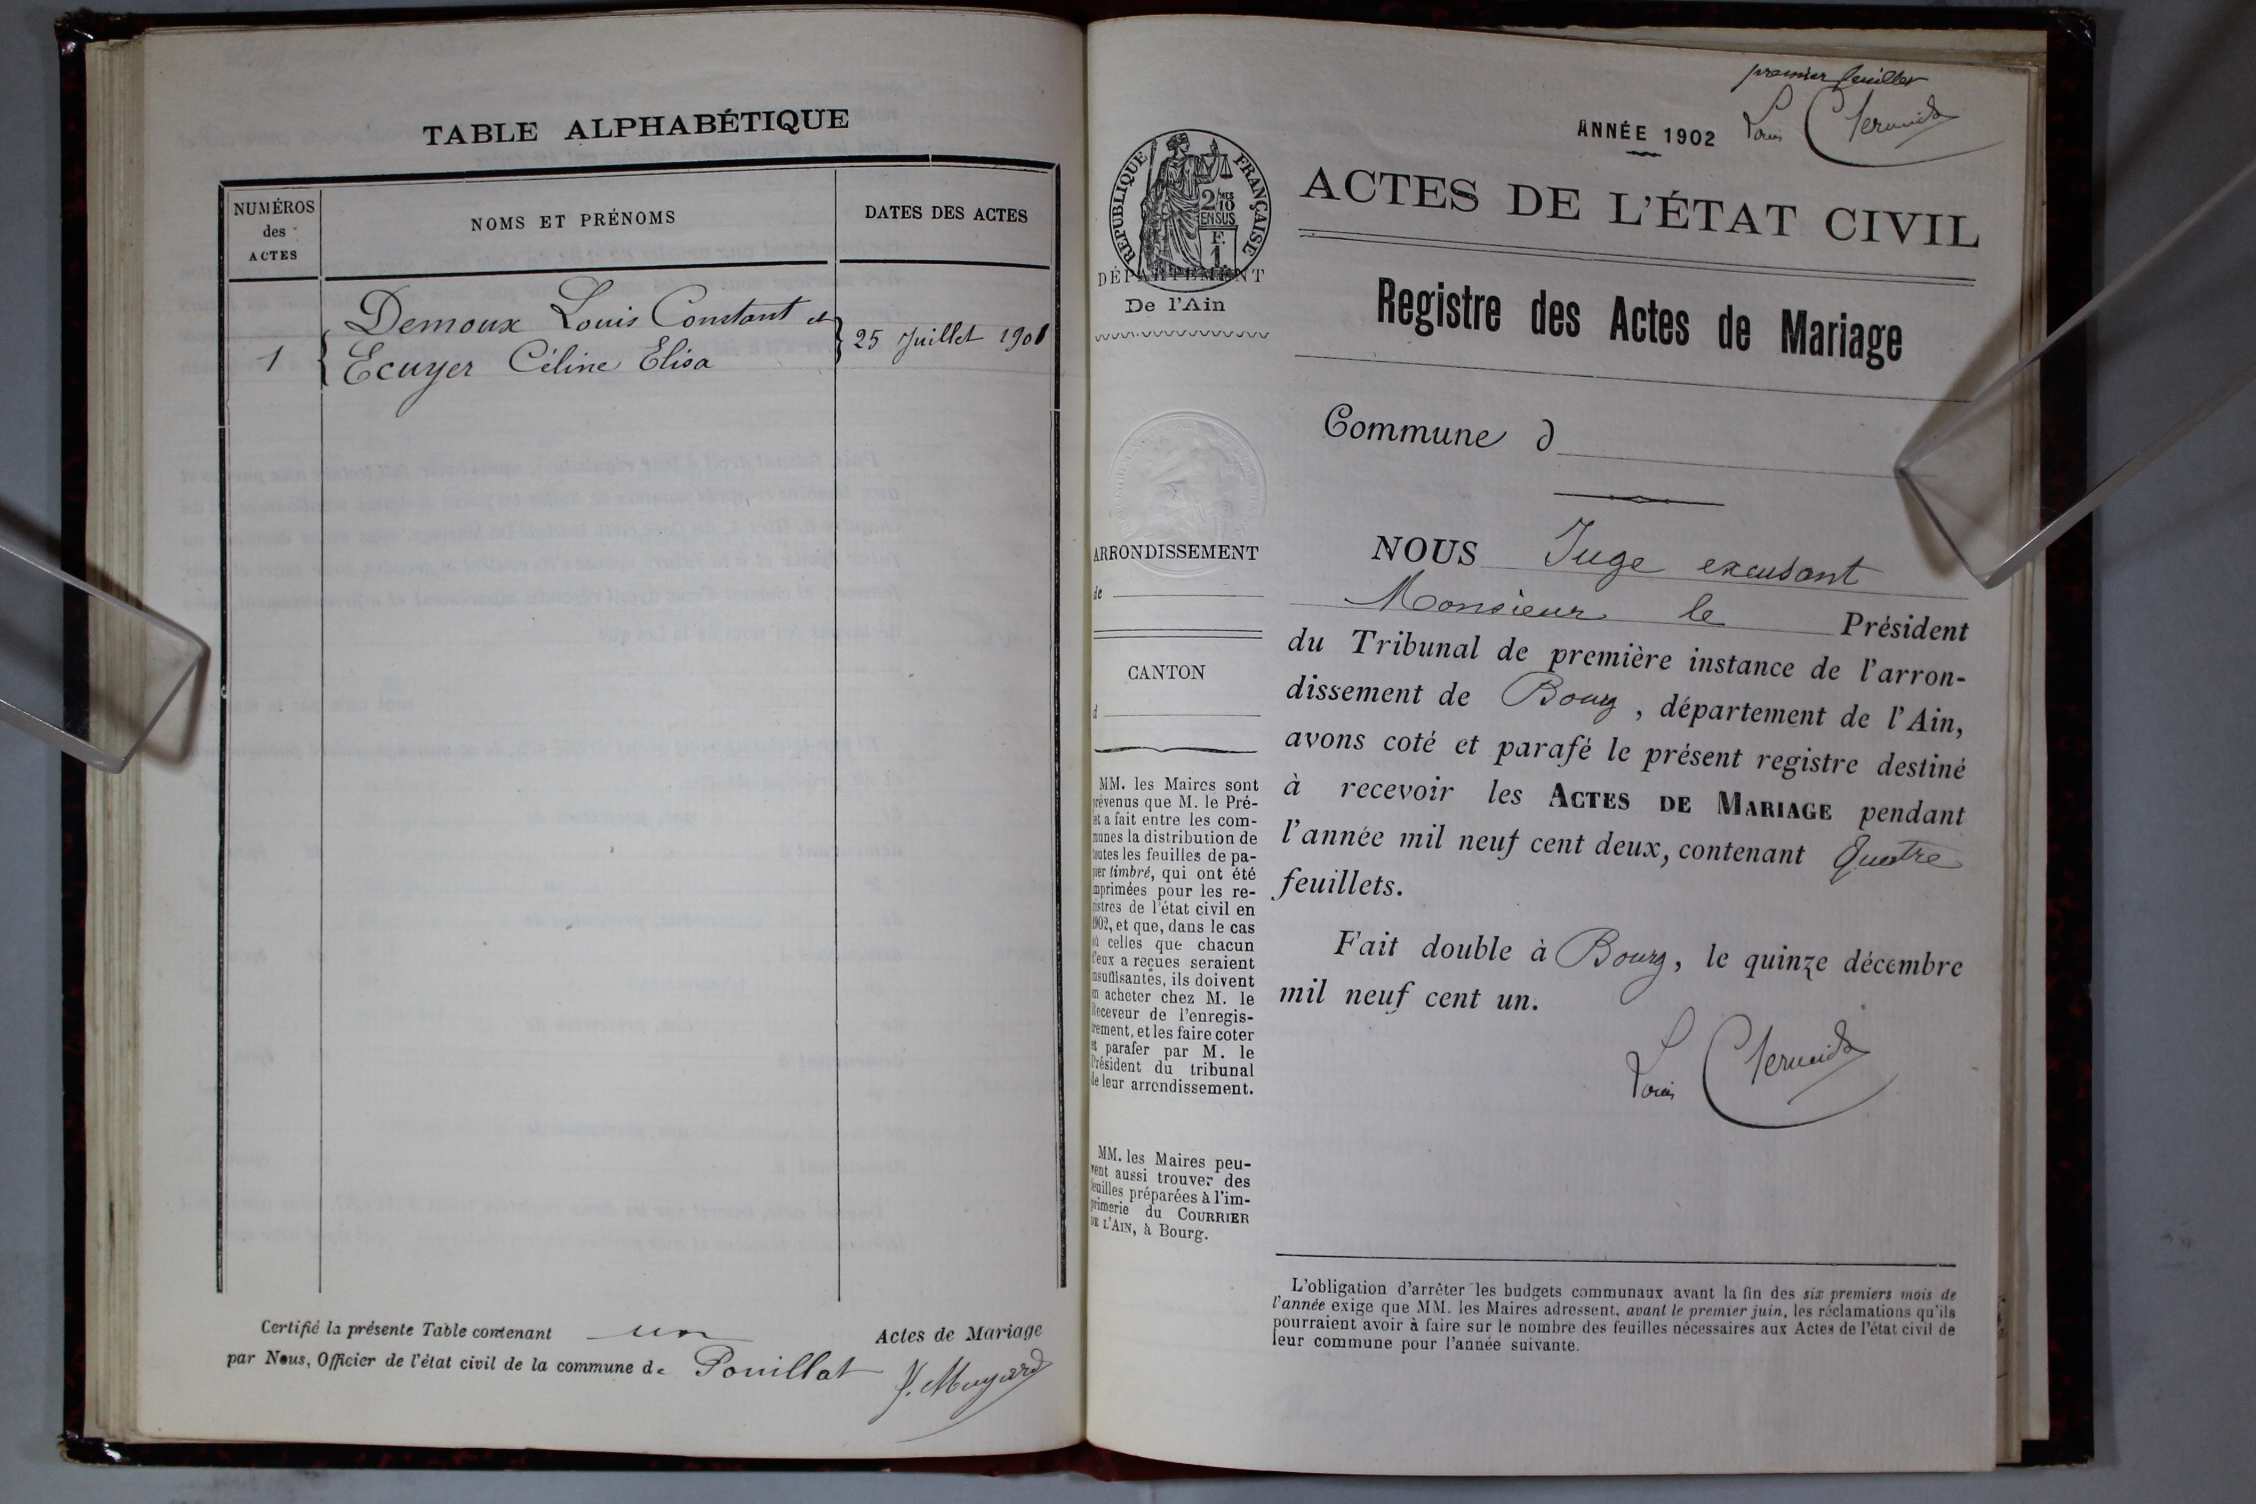 TABLE ALPHABÉTIQUE
NUMÉROS
des
ACTES
NOMS ET PRÉNOMS
DATES DES ACTES
1
Demoux Louis Constant et
Ecuyer Céline Elisa
25 Juillet 1901
Certifié la présente Table contenant un Actes de Mariage
par Nous, Officier de l'état civil de la commune de Pouillat
premier feuillet
ANNÉE 1902
Louis
RÉPUBLIQUE FRANÇAISE
2/10
EN SUS
F.
1
DÉPARTEMENT
De l'Ain
ARRONDISSEMENT
de
CANTON
d
MM. les Maires sont
prévenus que M. le Pré-
et a fait entre les com-
munes la distribution de
toutes les feuilles de pa-
pier timbré, qui ont été
imprimées pour les re-
gistres de l'état civil en
1902, et que, dans le cas
où celles que chacun
d'eux a reçues seraient
insuffisantes, ils doivent
en acheter chez M. le
Receveur de l'enregis-
trement, et les faire coter
et parafer par M. le
Président du tribunal
de leur arrondissement.
MM. les Maires peu-
vent aussi trouver des
feuilles préparées à l'im-
primerie du COURRIER
DE L'AIN, à Bourg.
ACTES DE L'ÉTAT CIVIL
Registre des Actes de Mariage
Commune d
NOUS Juge excusant
Monsieur le Président
du Tribunal de première instance de l'arron-
dissement de Bourg, département de l'Ain,
avons coté et parafé le présent registre destiné
à recevoir les ACTES DE MARIAGE pendant
l'année mil neuf cent deux, contenant Quatre
feuillets.
Fait double à Bourg, le quinze décembre
mil neuf cent un.
Louis
L'obligation d'arrêter les budgets communaux avant la fin des six premiers mois de
l'année exige que MM. les Maires adressent, avant le premier juin, les réclamations qu'ils
pourraient avoir à faire sur le nombre des feuilles nécessaires aux Actes de l'état civil de
leur commune pour l'année suivante.